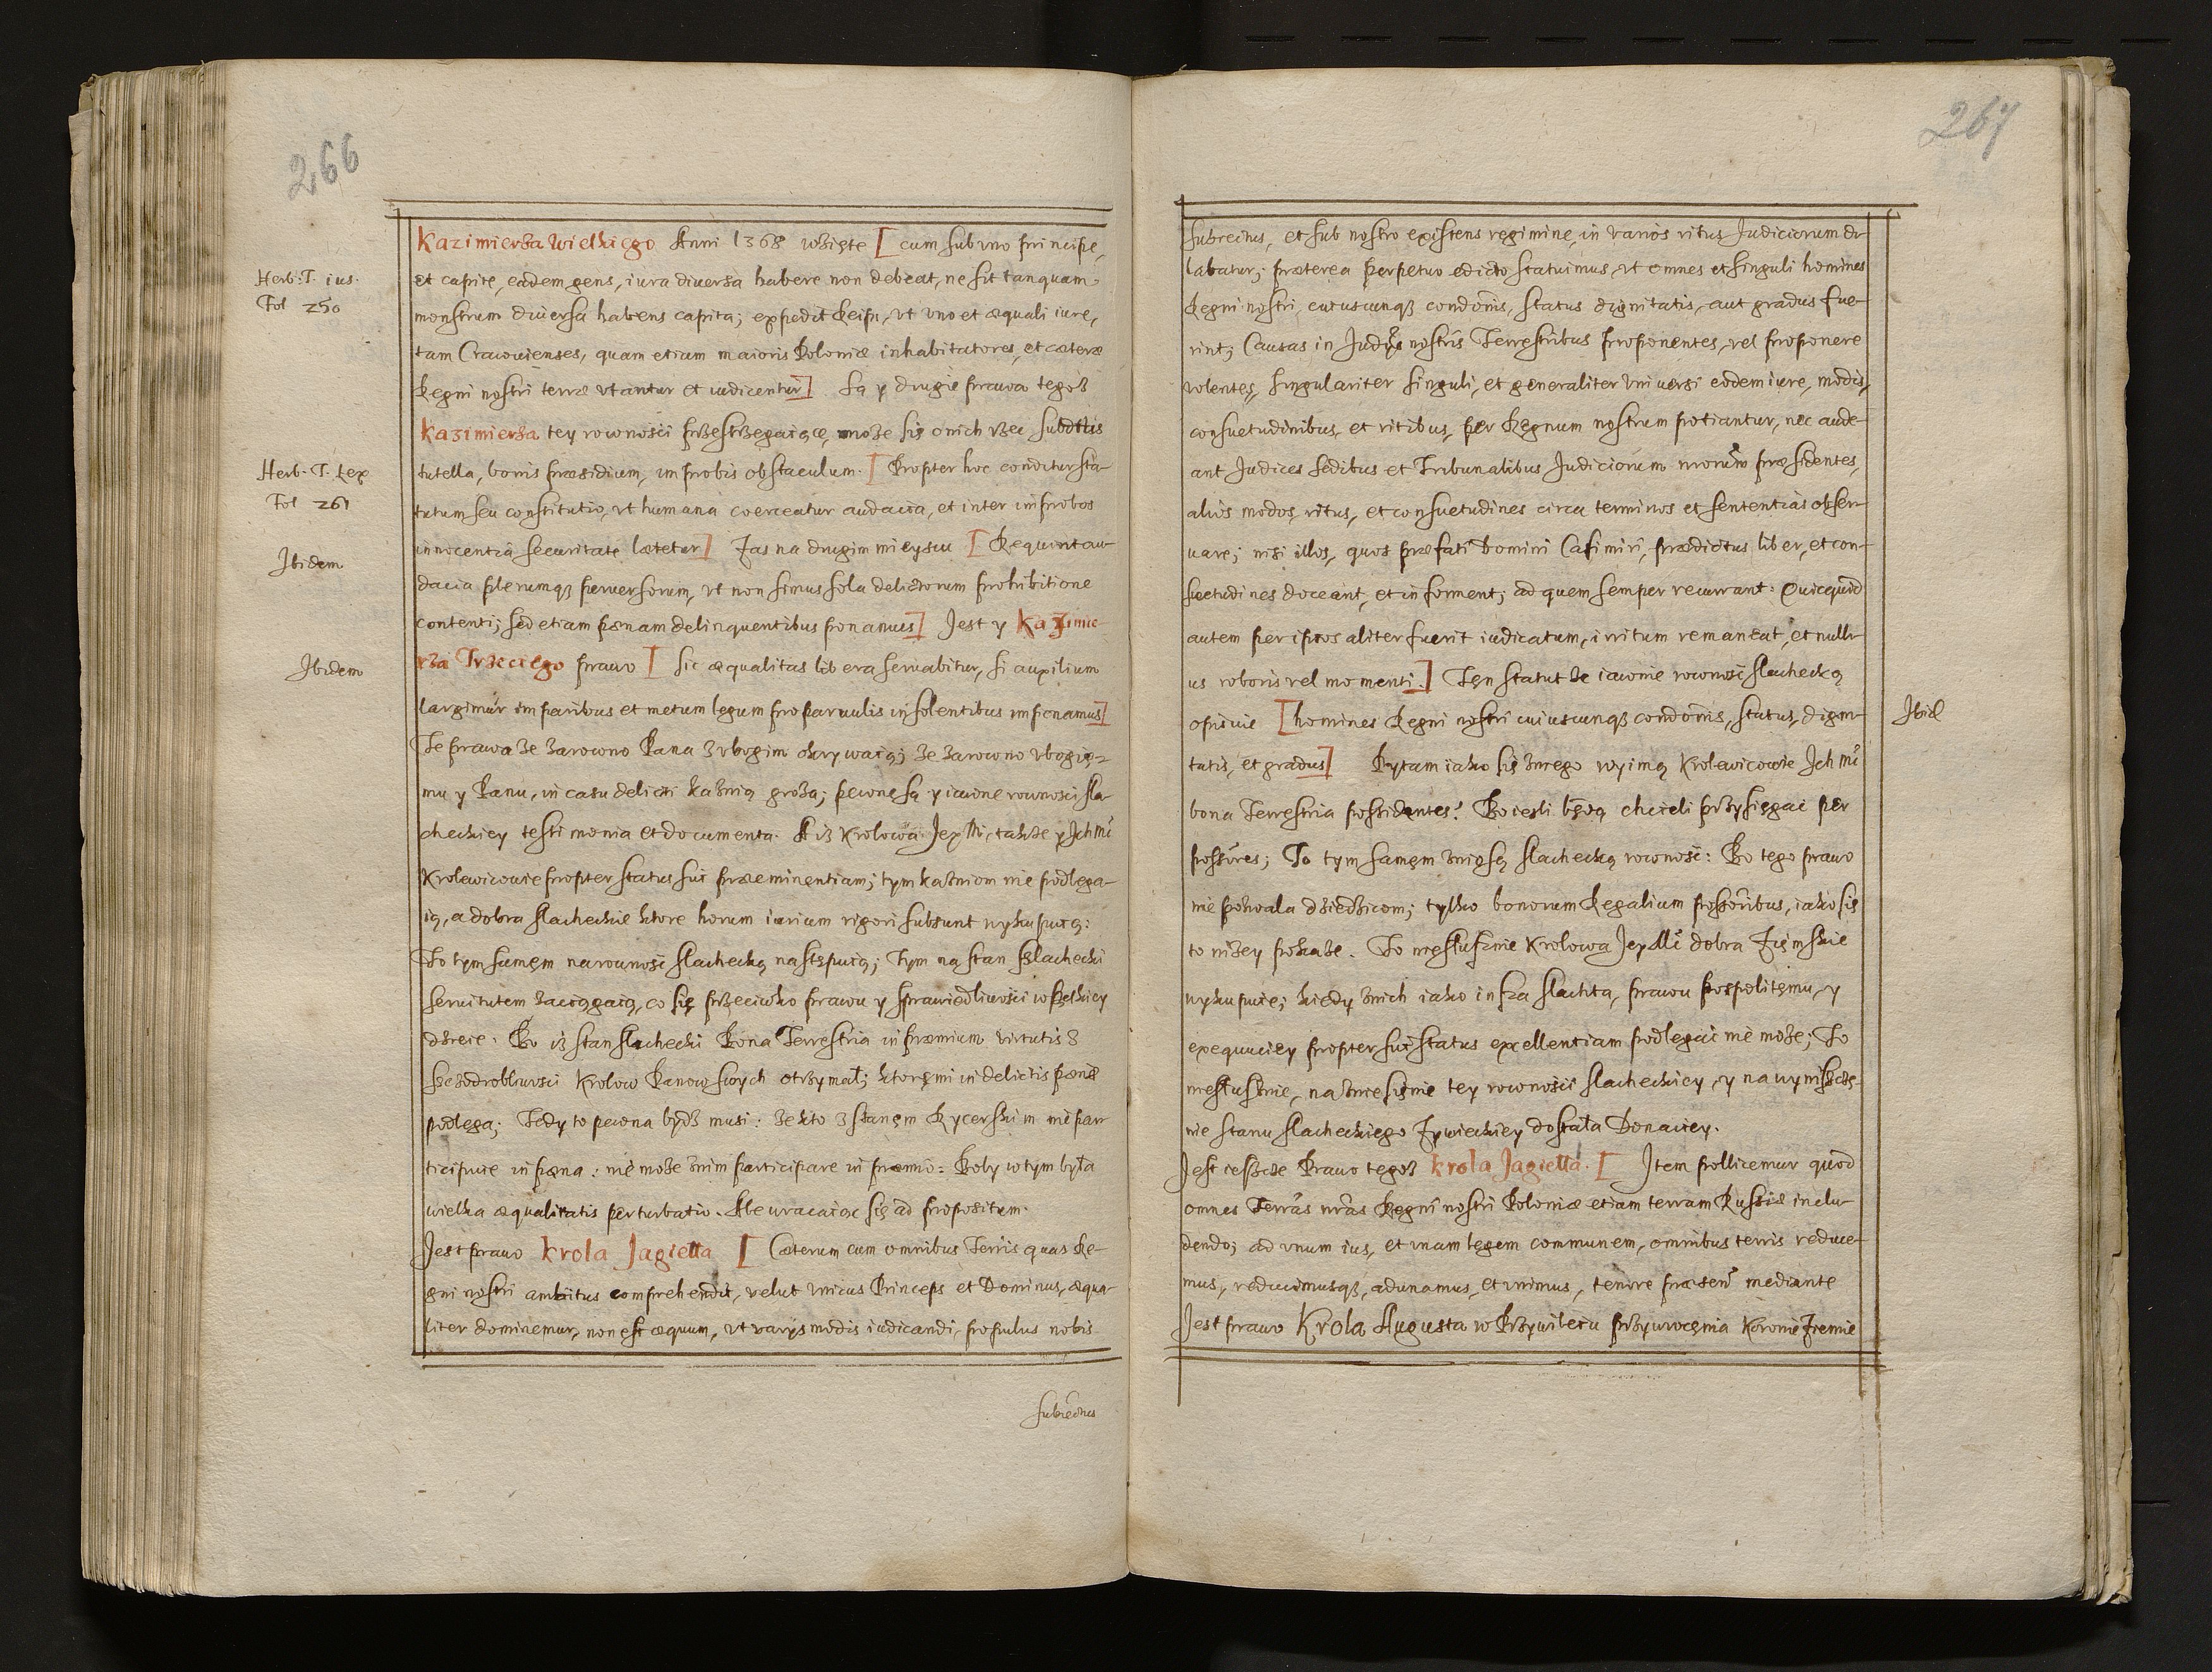 266
Kazimierza Wielkiego Anni 1368 wzięte [ cum sub uno principe,
Herb. T. ius.
et capite, eadem gens, iura diuersa habere non debeat, ne sit tanquam
Fol 250
monstrum diuersa habens capita; expedit Reipu, vt vno et æquali iure,
tam Cracouienses, quam etiam maioris Poloniæ inhabitatores, et cæteræ
Regni nostri terræ vtantur et iudicentur] Są y drugie prawa tegoż
Kazimierza tey rowności przestrzegaiące, może się o nich rzec subditis
Herb. T. Lex
tutella, bonis præsidium, improbis obstaculum. [ Propter hoc conditur sta-
Fol 261
tutum seu constitutio, vt humana coerceatur audacia, et inter improbos
Ibidem
innocentia securitate lætetur] Zas na drugim mieyscu [ Requirit au-
dacia plerumqʒ peruersorum, vt non simus sola delictorum prohibitione
contenti; sed etiam pænam delinquentibus ponamus] Jest y Kazimie-
Ibidem
rza Trzeciego prawo [ Sic æqualitas libera seruabitur, si auxilium
largimur imparibus et metum legum pro paruulis insolentibus imponamus]
Te prawa że zarowno Pana z vbogim okrywaią; że zarowno vbogie-
mu y Panu, in casu delicti kaźnią grożą; pewne są y iawne rowności sla-
checkiey testimonia et documenta. A iż Krolowa Jey Mć, także y Ich Mć
Krolewicowie propter status sui præeminentiam; tym kaźniom nie podlega-
ią, a dobra slacheckie ktore horum iurium rigori subsunt wykupuią:
To tym samem na rowność slachecką następuią; Tym na stan slachecki
seruitutem zaciągaią, co się przeciwko prawu y sprawiedliwości wszelkiey
dzieie. Bo iż stan slachecki Bona Terrestria in præmium virtutis z
szczodrobliwości Krolow Panow swych otrzymał; ktoremi in delictis pænæ
podlega; Tedy to pewna bydź musi: że kto z stanem Rycerskim nie par-
ticipuie in pæna: nie może z nim participare in præmio: Boby w tym była
wielka æqualitatis perturbatio. Ale wracaiąc się ad propositum.
Jest prawo Krola Jagiella [ Cæterum cum omnibus Terris quas Re-
gni nostri ambitus comprehendit, velut vnicus Princeps et Dominus, æqua-
liter dominemur, non est æquum, vt varijs modis iudicandi, populus nobis
subiectus
267
subiectus, et sub nostro existens regimine, in varios ritus Judiciorum di-
labatur; præterea perpetuo edicto statuimus, vt omnes et singuli homines
Regni nostri, cuiuscunqʒ condonis, status dignitatis, aut gradus fue-
rint; Causas in Judijs nostris Terrestribus proponentes, vel proponere
volentes, singulariter singuli, et generaliter vniuersi eodem iure, modis,
consuetudinibus, et ritibus, per Regnum nostrum potiantur, nec aude-
ant Judices sedibus et Tribunalibus Judiciorum nrorum præsidentes,
alios modos, ritus, et consuetudines circa terminos et sententias obser-
uare; nisi illos, quos præfati Domini Casimiri, prædictus liber, et con-
suetudines doceant, et informent; ad quem semper recurrant: Quicquid
autem per ipsos aliter fuerit iudicatum, irritum remaneat, et nulli-
us roboris vel momenti.] Ten statut że iawnie rowność slachecką
opiwie [homines Regni nostri cuiuscunqʒ condonis, status, digni-
Ibid
tatis, et gradus] Pytam iako się z niego wyimą Krolewicowie Ich Mć
bona Terrestria possidentes? Bo iesli będą chcieli przysięgać per
possores; To tym samem zniosą slachecką rowność: Bo tego prawo
nie pozwala dziedzicom; tylko bonorum Regalium possoribus, iako się
to niżey pokaże. To niesłusznie Krolowa Jey Mć dobra Ziemskie
wykupuie; kiedy z nich iako insza slachta, prawu pospolitemu, y
exequuciey propter sui status excellentiam podlegać nie może; To
niesłusznie, na zniesienie tey rowności slacheckiey, y na wyniszcze-
nie stanu slacheckiego Zywieckiey dostała Donaciey.
Jest ieszcze Prawo tegoż Krola Jagiella. [ Item pollicemur quod
omnes Terras nras Regni nostri Poloniæ etiam terram Russiæ inclu-
dendo; ad vnum ius, et vnam legem communem, omnibus terris reduce-
mus, reducimusqʒ, adunamus, et vnimus, tenore præsent mediante
Jest prawo Krola Augusta w Przywileiu przywrocenia Koronie Ziemie